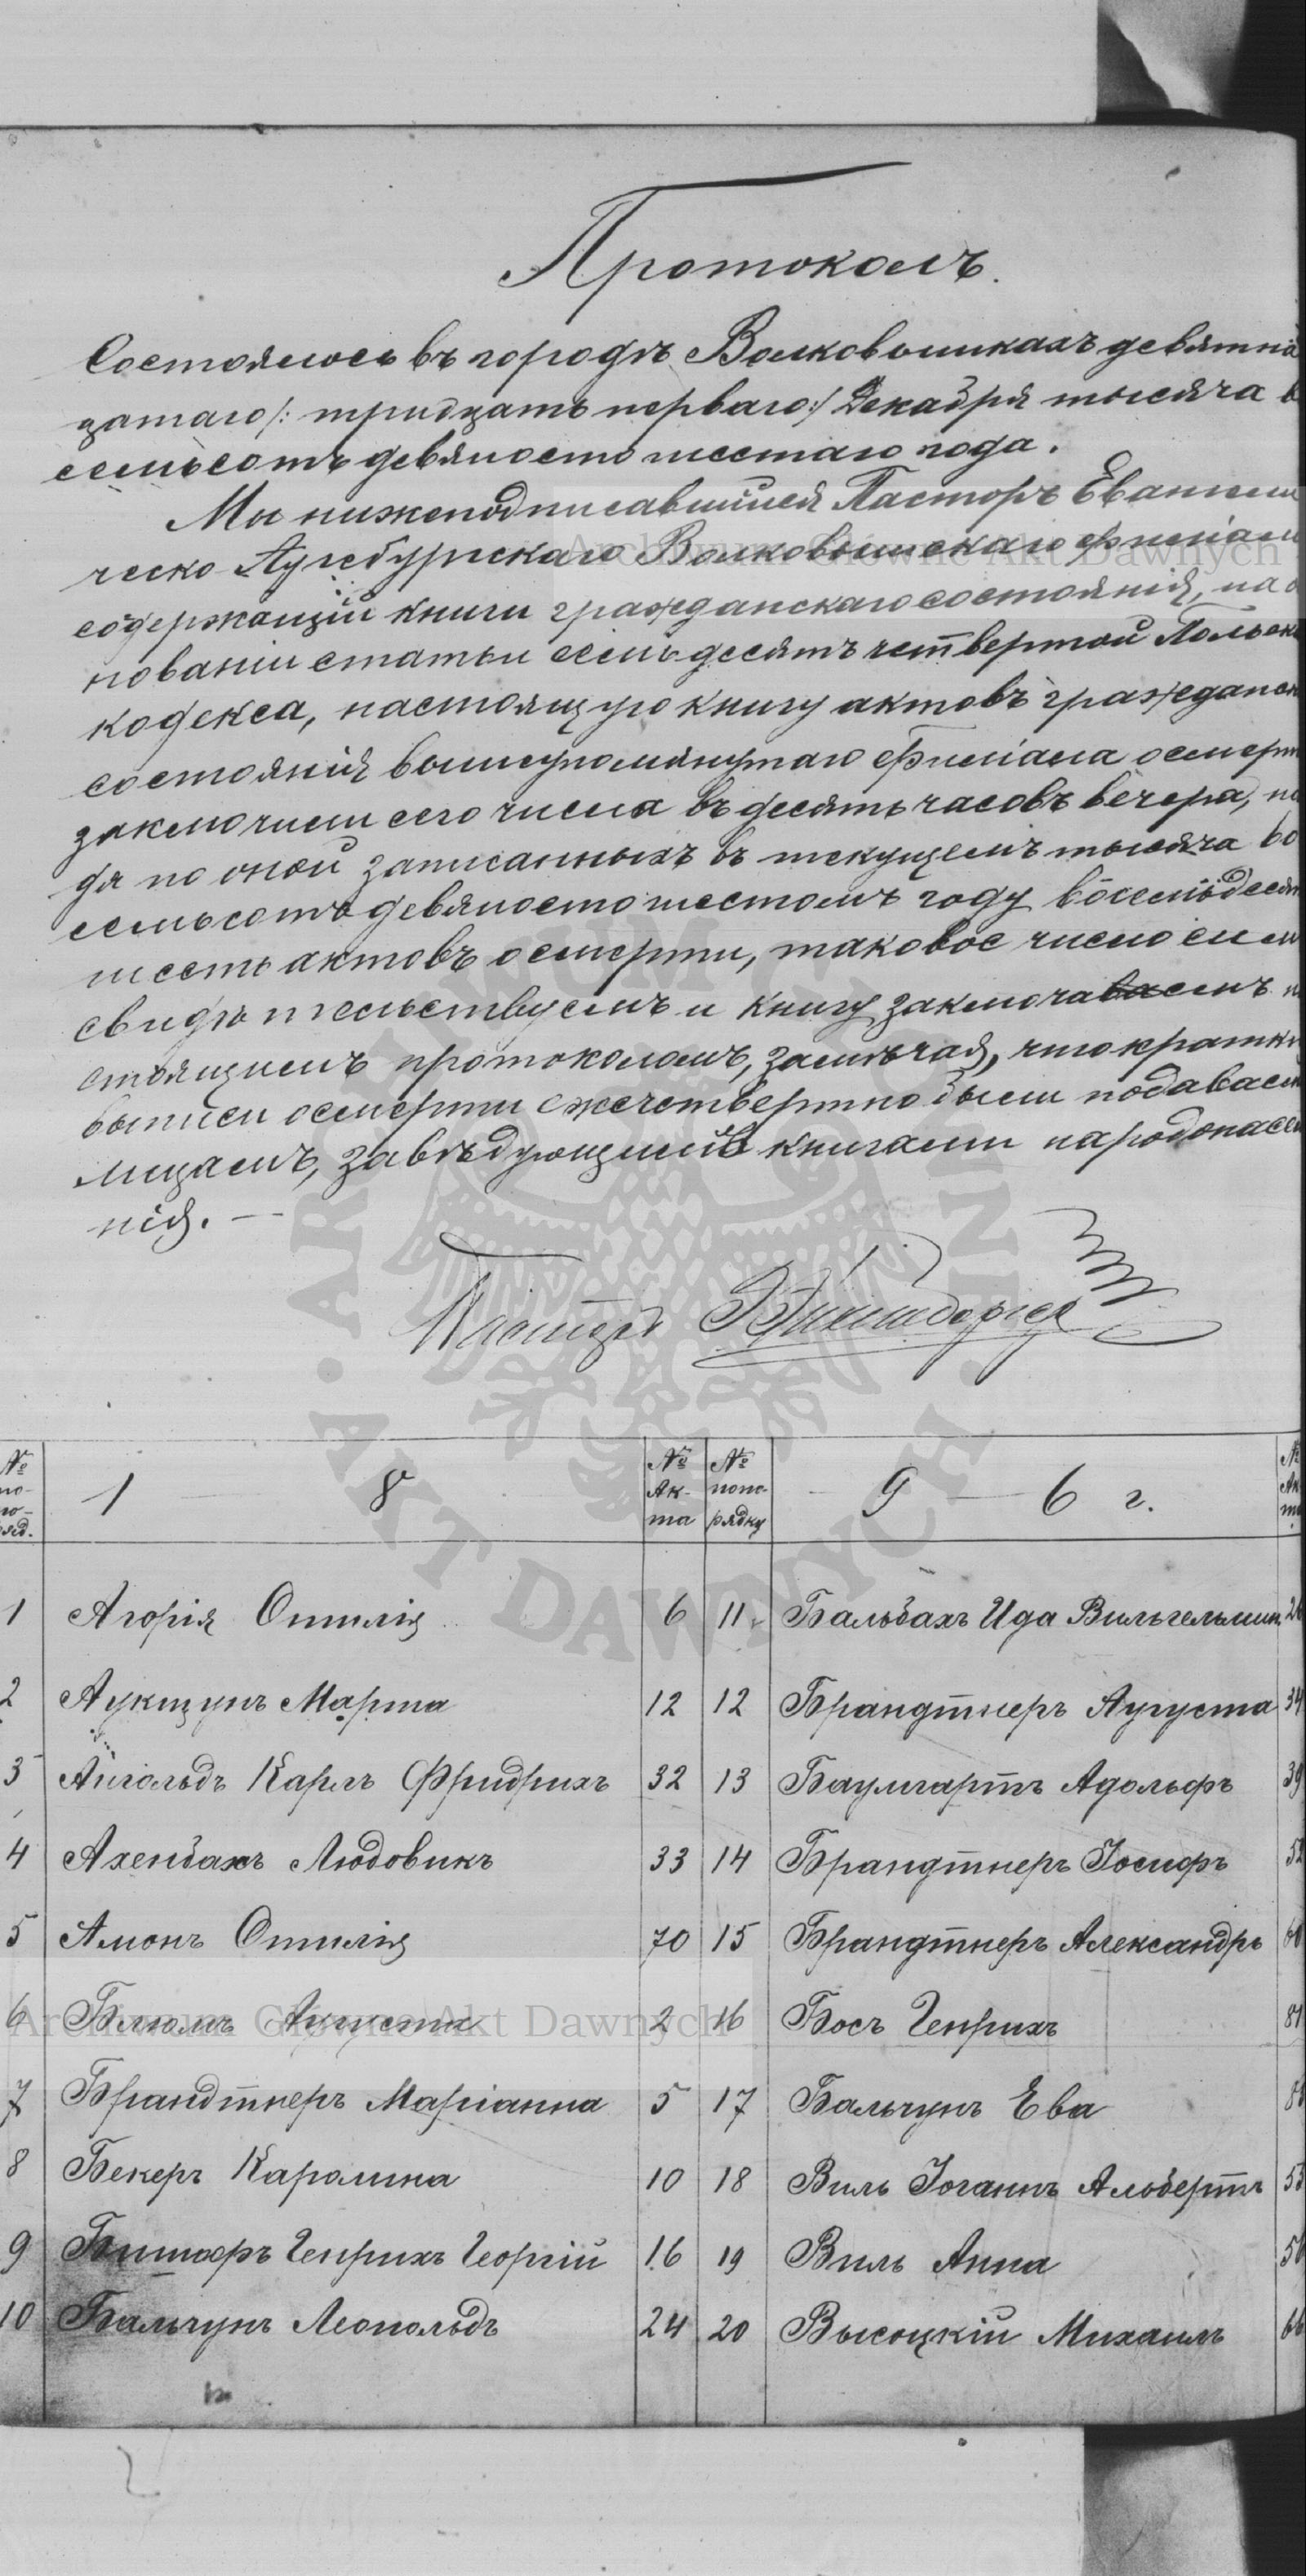 Протоколъ.
Состоялось въ городѣ Волковышкахъ девятна
цатаго /: тридцать перваго:/ Декабря тысяча в
семьсотъ девяносто шестаго года.
Мы нижеподписавшійся Пасторъ Евангели
ческо Аугсбургскаго Волковышскаго филіала
содержащій книги гражданскаго состоянія, на о
нованіи статьи семьдесятъ четвертой Польска
кодекса, настоящую книгу актовъ гражданск
состоянія вышеупомянутаго филіала о смерт
заключили сего числа въ десять часовъ вечера, на
дя по оной записанныхъ въ текущемъ тысяча во
семьсотъ девяносто шестомъ году восемьдесят
шесть актовъ о смерти, таковое число сим
свидѣтельствуемъ и книгу заключаваемъ н
стоящимъ протоколомъ, замѣчая, что кратки
выписи о смерти ежечетвертно были подаваем
лицамъ, завѣдующимъ книгами народонасел
нія. —
Пасторъ
№ по- по- ряд. 1 8 № Ак- та № попо- рядку 9 — 6 г. № Ак та
1 Агорія Оттилія 6 11 Бальбахъ Ида Вильгельмин. 26
2 Аукщунъ Марта 12 12 Брандтнеръ Аугуста 34
3 Айгольдъ Карлъ Фридрихъ 32 13 Баумгартъ Адольфъ 39
4 Ахенбахъ Людовикъ 33 14 Брандтнеръ Іосифъ 52
5 Амонъ Оттилія 70 15 Брандтнеръ Александръ
6 Блюмъ Аугуста 2 16 Босъ Генрихъ 81
7 Брандтнеръ Маріанна 5 17 Бальчунъ Ева
8 Бекеръ Каролина 10 18 Виль Іоганнъ Альбертъ 53
9 Генрихъ Георгій 16 19 Виль Анна
10 Бальчунъ Леопольдъ 24 20 Высоцкій Михаилъ 66
Archiwum Główne Akt Dawnych
Archiwum Główne Akt Dawnych
ARCHIWUM GŁÓWNE
AKT DAWNYCH